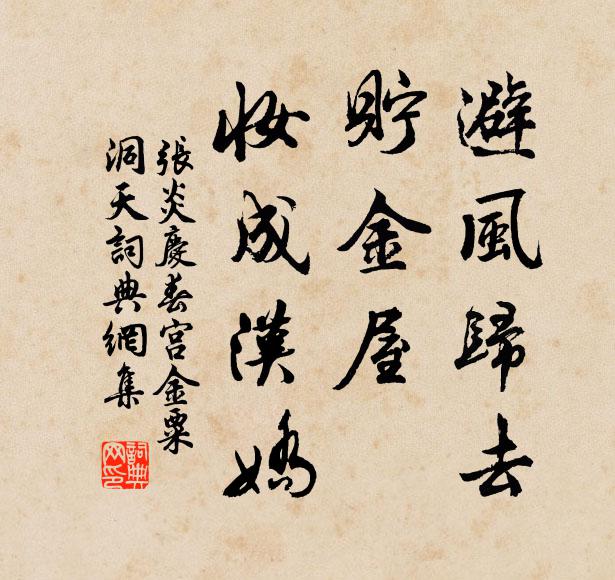 避風歸去
貯金屋
妝成漢嬌
張炎慶春宮金粟
洞天詞典網集
詞典
网印